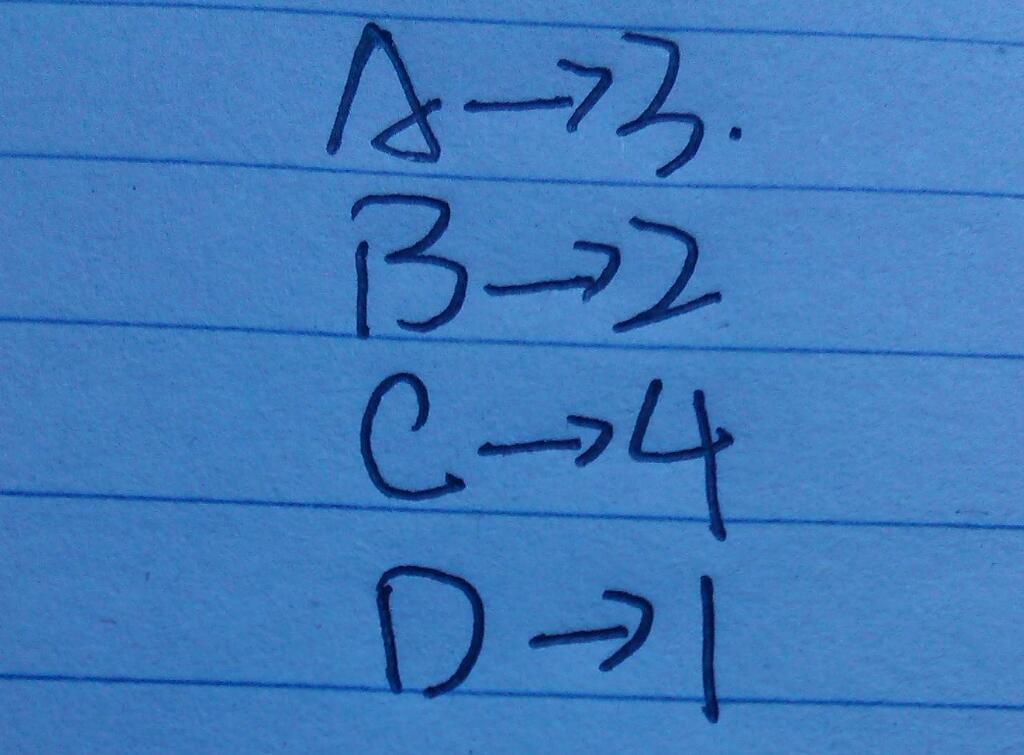 A→3.
B→2
C→4
D→1